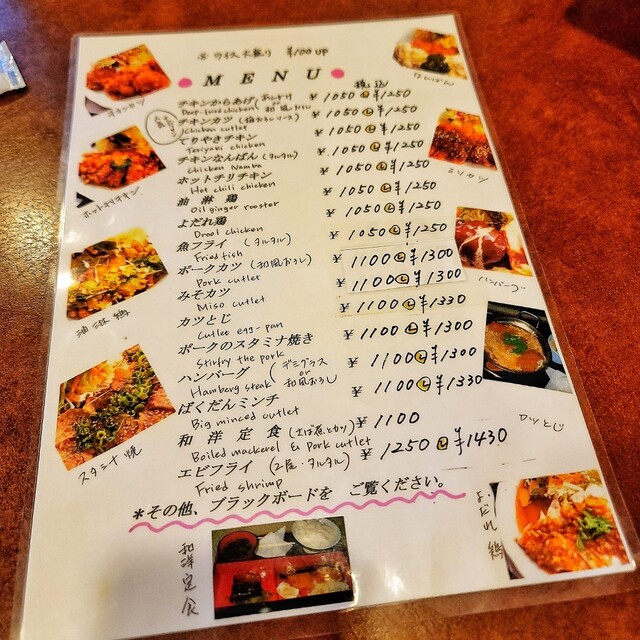 ライス大盛り ¥100 UP
MENU
税込
チキンからあげ (おろしダレ or 和風おろし
Deep-fried chicken ¥1050 ㊤ ¥1250
チキンカツ (梅おろしソース)
Chicken cutlet ¥1050 ㊤ ¥1250
てりやきチキン
Teriyaki chicken ¥1050 ㊤ ¥1250
チキンなんばん (タルタル)
Chicken Namba ¥1050 ㊤ ¥1250
ホットチリチキン
Hot chili chicken ¥1050 ㊤ ¥1250
油淋鶏
Oil ginger rooster ¥1050 ㊤ ¥1250
よだれ鶏
Drool chicken ¥1050 ㊤ ¥1250
魚フライ (タルタル)
Fried fish ¥1100 ㊤ ¥1300
ポークカツ (和風おろし)
Pork cutlet ¥1100 ㊤ ¥1300
みそカツ
Miso cutlet ¥1100 ㊤ ¥1330
カツとじ
Cutlet egg-pan ¥1100 ㊤ ¥1300
ポークのスタミナ焼き
Stirfry the pork ¥1100 ㊤ ¥1300
ハンバーグ (デミグラス or 和風おろし
Hamberg steak ¥1100 ㊤ ¥1330
ばくだんミンチ
Big minced cutlet ¥1100
和洋定食 (さば煮とカツ)
Boiled mackerel & Pork cutlet ¥1250 ㊤ ¥1430
エビフライ (2尾・タルタル)
Fried shrimp
*その他、ブラックボードを ご覧ください。
チキンカツ
ホットチリチキン
油淋鶏
スタミナ焼
和洋定食
ミソカツ
ハンバーグ
カツとじ
よだれ鶏